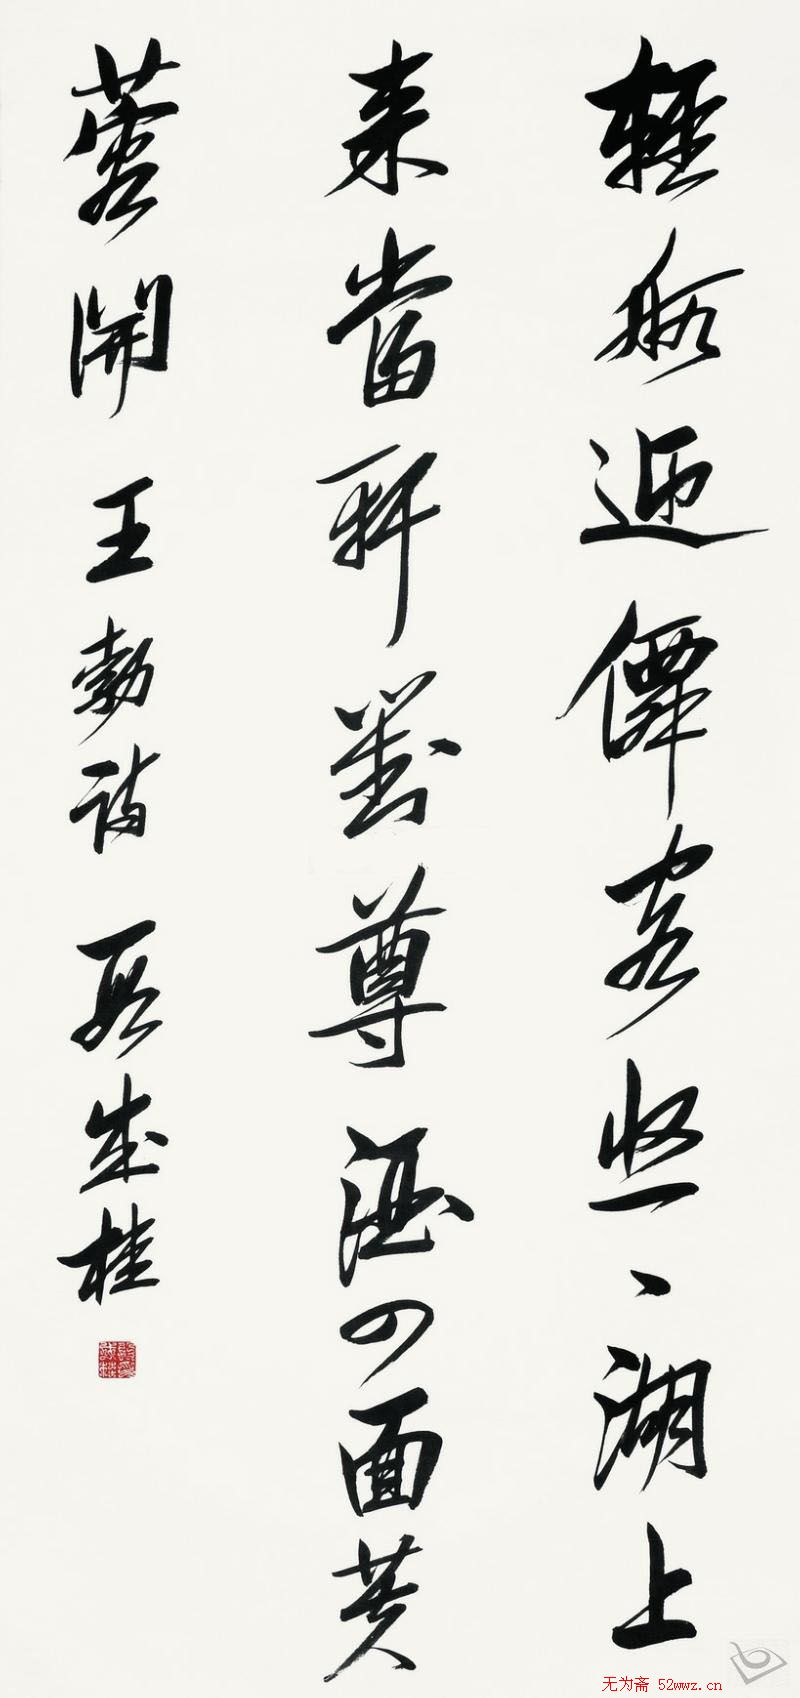 輕舸迎僊客悠、湖上
来當軒對尊酒四面芙
蓉開 王勃詩 段成桂
无为斋 52wwz.cn